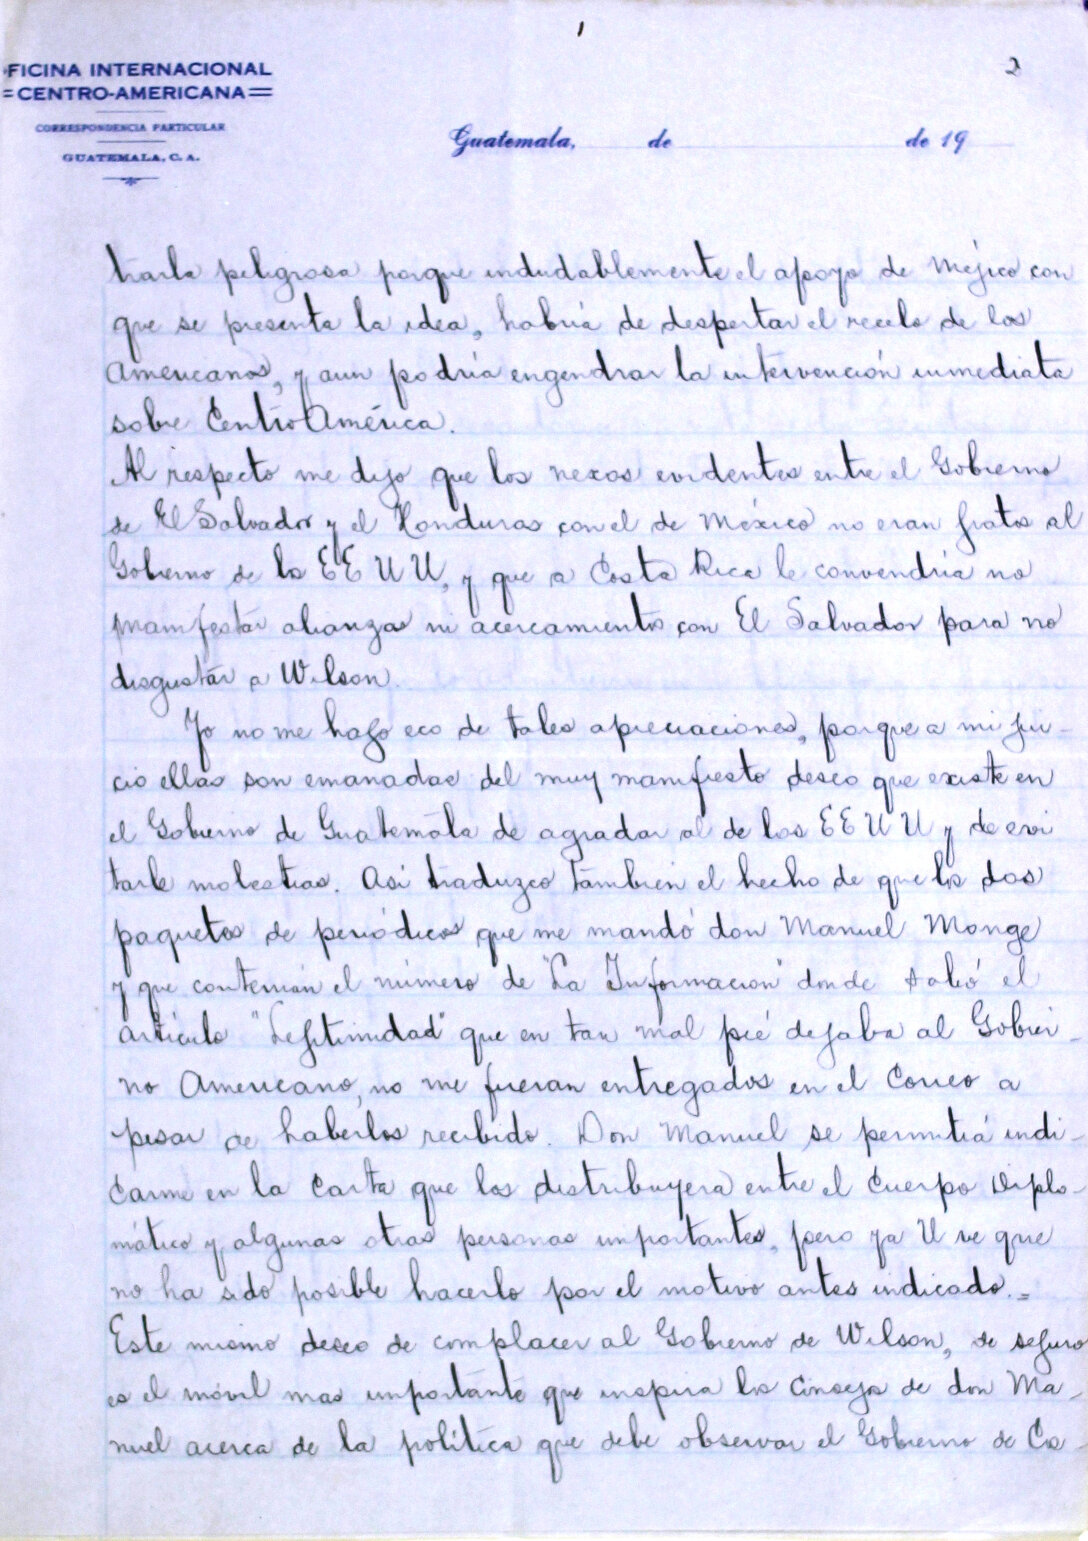 1
2
FICINA INTERNACIONAL
CENTRO-AMERICANA
CORRESPONDENCIA PARTICULAR
GUATEMALA, C. A.
Guatemala, de de 19
trarla peligrosa porque indudablemente el apoyo de Méjico con
que se presenta la idea, habría de despertar el recelo de los
Americanos, y aun podría engendrar la intervención inmediata
sobre Centro América.
Al respecto me dijo que los nexos evidentes entre el Gobierno
de El Salvador y el Honduras con el de México no eran gratos al
Gobierno de los EE UU, y que a Costa Rica le convendría no
manifestar alianzas ni acercamientos con El Salvador para no
disgustar a Wilson.
Yo no me hago eco de tales apreciaciones, porque a mi jui-
cio ellas son emanadas del muy manifiesto deseo que existe en
el Gobierno de Guatemala de agradar al de los EE UU y de evi
tarle molestias. Así traduzco también el hecho de que los dos
paquetes de periódicos que me mandó don Manuel Monge
y que contenían el número de "La Información" donde salió el
artículo "Legitimidad" que en tan mal pié dejaba al Gobier-
no Americano, no me fueran entregados en el Correo a
pesar de haberlos recibido. Don Manuel se permitiá indi-
carme en la carta que los distribuyera entre el Cuerpo Diplo-
mático y algunas otras personas importantes, pero ya U ve que
no ha sido posible hacerlo por el motivo antes indicado.=
Este mismo deseo de complacer al Gobierno de Wilson, de seguro
es el móvil mas importante que inspira los consejos de don Ma-
nuel acerca de la política que debe observar el Gobierno de Cos-